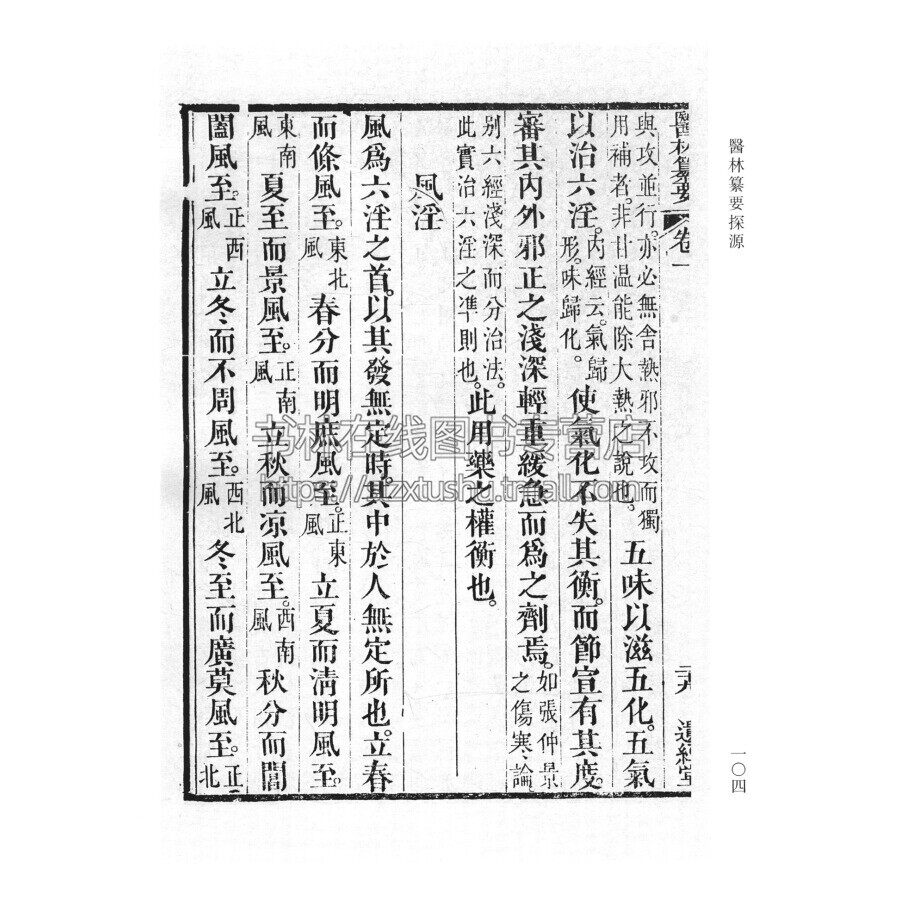 醫林纂要探源
一〇四
醫林纂要 卷一 遺經堂
與攻並行。亦必無舍熱邪不攻而獨
用補者。非甘溫能除大熱之說也。
五味以滋五化。五氣
以治六淫。
內經云。氣歸
形。味歸化。
使氣化不失其衡。而節宣有其度。
審其內外邪正之淺深輕重緩急而為之劑焉。
如張仲景
之傷寒論
別六經淺深而分治法。
此實治六淫之準則也。
此用藥之權衡也。
風淫
風為六淫之首。以其發無定時。其中於人無定所也。立春
而條風至。
東北
風
春分而明庶風至。
正東
風
立夏而清明風至。
東南
風
夏至而景風至。
正南
風
立秋而凉風至。
西南
風
秋分而閶
闔風至。
正西
風
立冬而不周風至。
西北
風
冬至而廣莫風至。
正
北
书林在线图书专营店
https://jtzxtushu.tmall.com